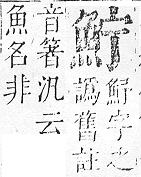 魣字之
譌舊註
音箸汎云
魚名非